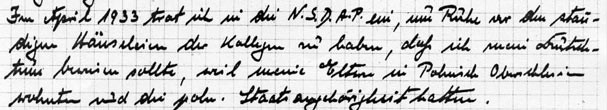 Im April 1933 trat ich in die N.S.D.A.P. ein, um Ruhe vor den stän-
digen Hänseleien der Kollegen zu haben, daß ich mein Deutsch-
tum beweisen sollte, weil meine Eltern in Polnisch Oberschlesien
wohnten und die poln. Staatsangehörigkeit hatten.